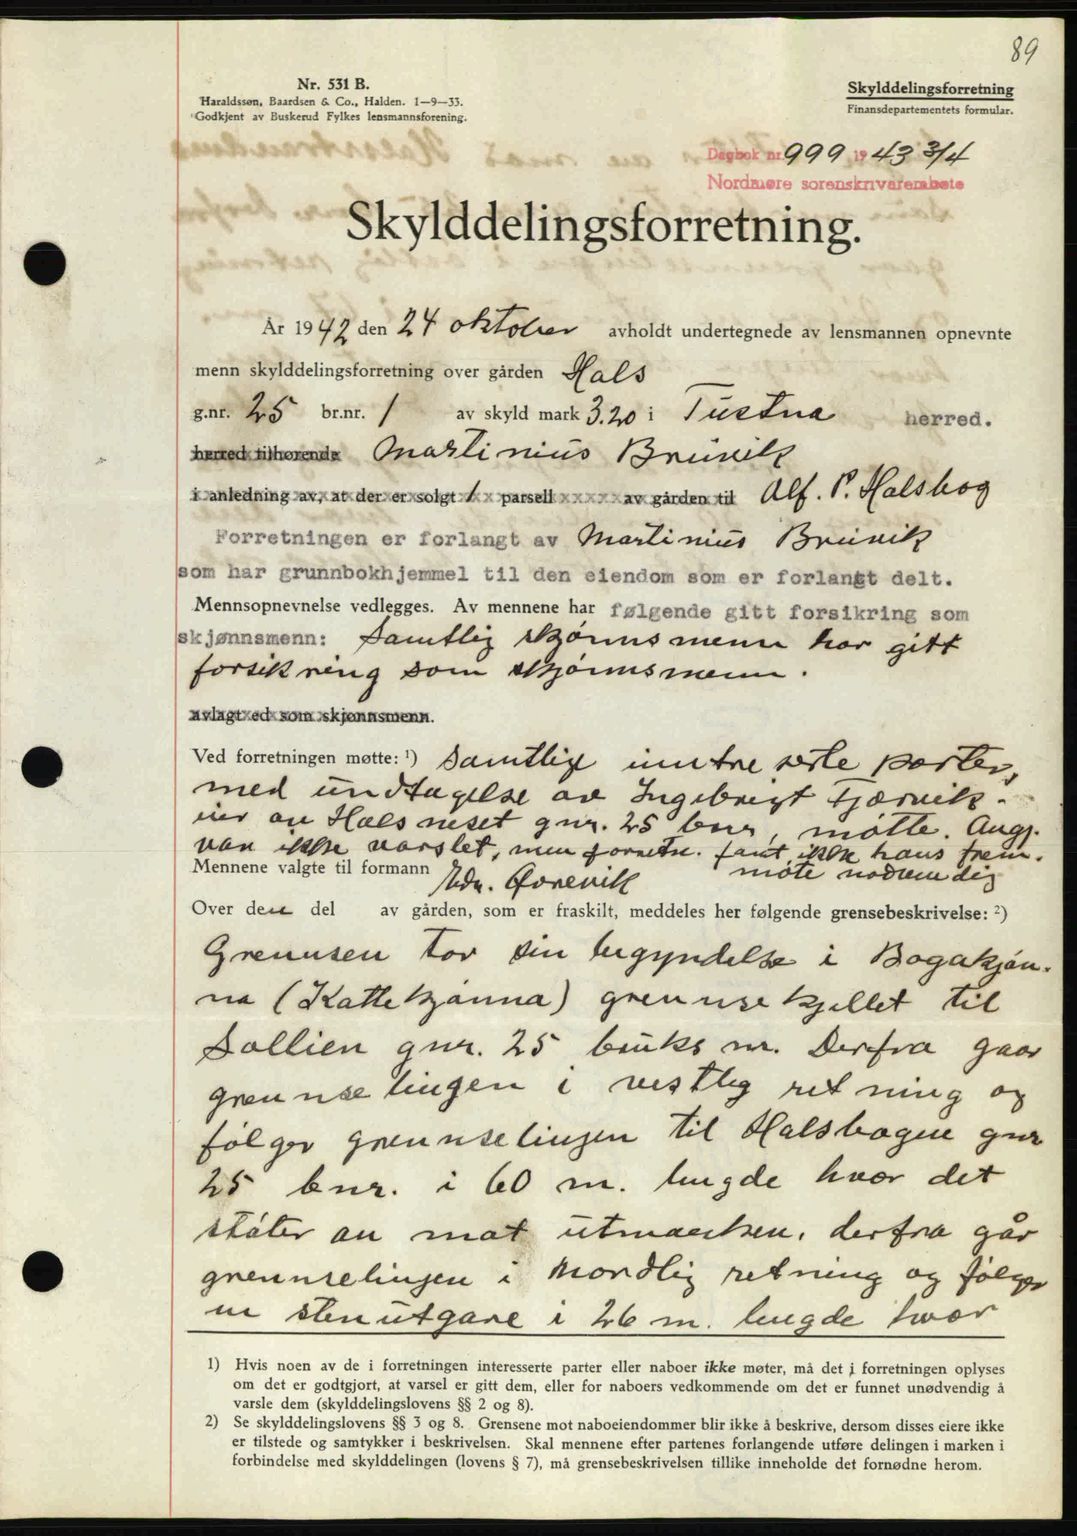 89
Nr. 531 B.
Haraldssøn, Baardsen & Co., Halden. 1—9—33.
Godkjent av Buskerud Fylkes lensmannsforening.
Skylddelingsforretning
Finansdepartementets formular.
Dagbok nr. 999 1943 3/4
Nordmøre sorenskriverembete
Skylddelingsforretning.
År 1942 den 24 oktober avholdt undertegnede av lensmannen opnevnte
menn skylddelingsforretning over gården Hals
g.nr. 25 br.nr. 1 av skyld mark 3.20 i Tustna herred.
herred tilhørende Martinius Brunvik
i anledning av, at der er solgt 1 parsell av gården til Alf. P. Halsbog
Forretningen er forlangt av Martinius Brunvik
som har grunnbokhjemmel til den eiendom som er forlangt delt.
Mennsopnevnelse vedlegges. Av mennene har følgende gitt forsikring som
skjønnsmenn: Samtlig skjønnsmenn har gitt
forsikring som skjønnsmenn.
avlagt ed som skjønnsmenn.
Ved forretningen møtte: ¹) Samtlige inntreserte parter,
med undtagelse av Ingebrigt Tjærvik.
eier av Halsneset gnr. 25 bnr, møtte. Angj.
van ikke varslet, men forretn. fant ikke hans frem.
møte nødvendig
Mennene valgte til formann Edv. Ørnevik
Over den del av gården, som er fraskilt, meddeles her følgende grensebeskrivelse: ²)
Grennsen tar sin begyndelse i Bogakjøn.
na (Kattekjønna) grennsekjellet til
Sollien gnr. 25 bruks nr. Derfra gaar
grennselingen i vestlig retning og
følger grennselingen til Halsbogen gnr
25 bnr. i 60 m. lengde hvor det
støter an mot utmarken, derfra går
grennselingen i Nordlig retning og følger
en stenutgare i 26 m. lengde hvor
1) Hvis noen av de i forretningen interesserte parter eller naboer ikke møter, må det i forretningen oplyses
om det er godtgjort, at varsel er gitt dem, eller for naboers vedkommende om det er funnet unødvendig å
varsle dem (skylddelingslovens §§ 2 og 8).
2) Se skylddelingslovens §§ 3 og 8. Grensene mot naboeiendommer blir ikke å beskrive, dersom disses eiere ikke
er tilstede og samtykker i beskrivelsen. Skal mennene efter partenes forlangende utføre delingen i marken i
forbindelse med skylddelingen (lovens § 7), må grensebeskrivelsen tillike inneholde det fornødne herom.